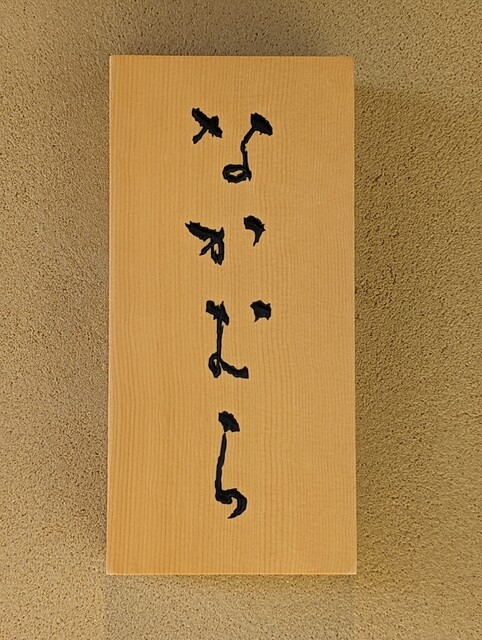 なかむら